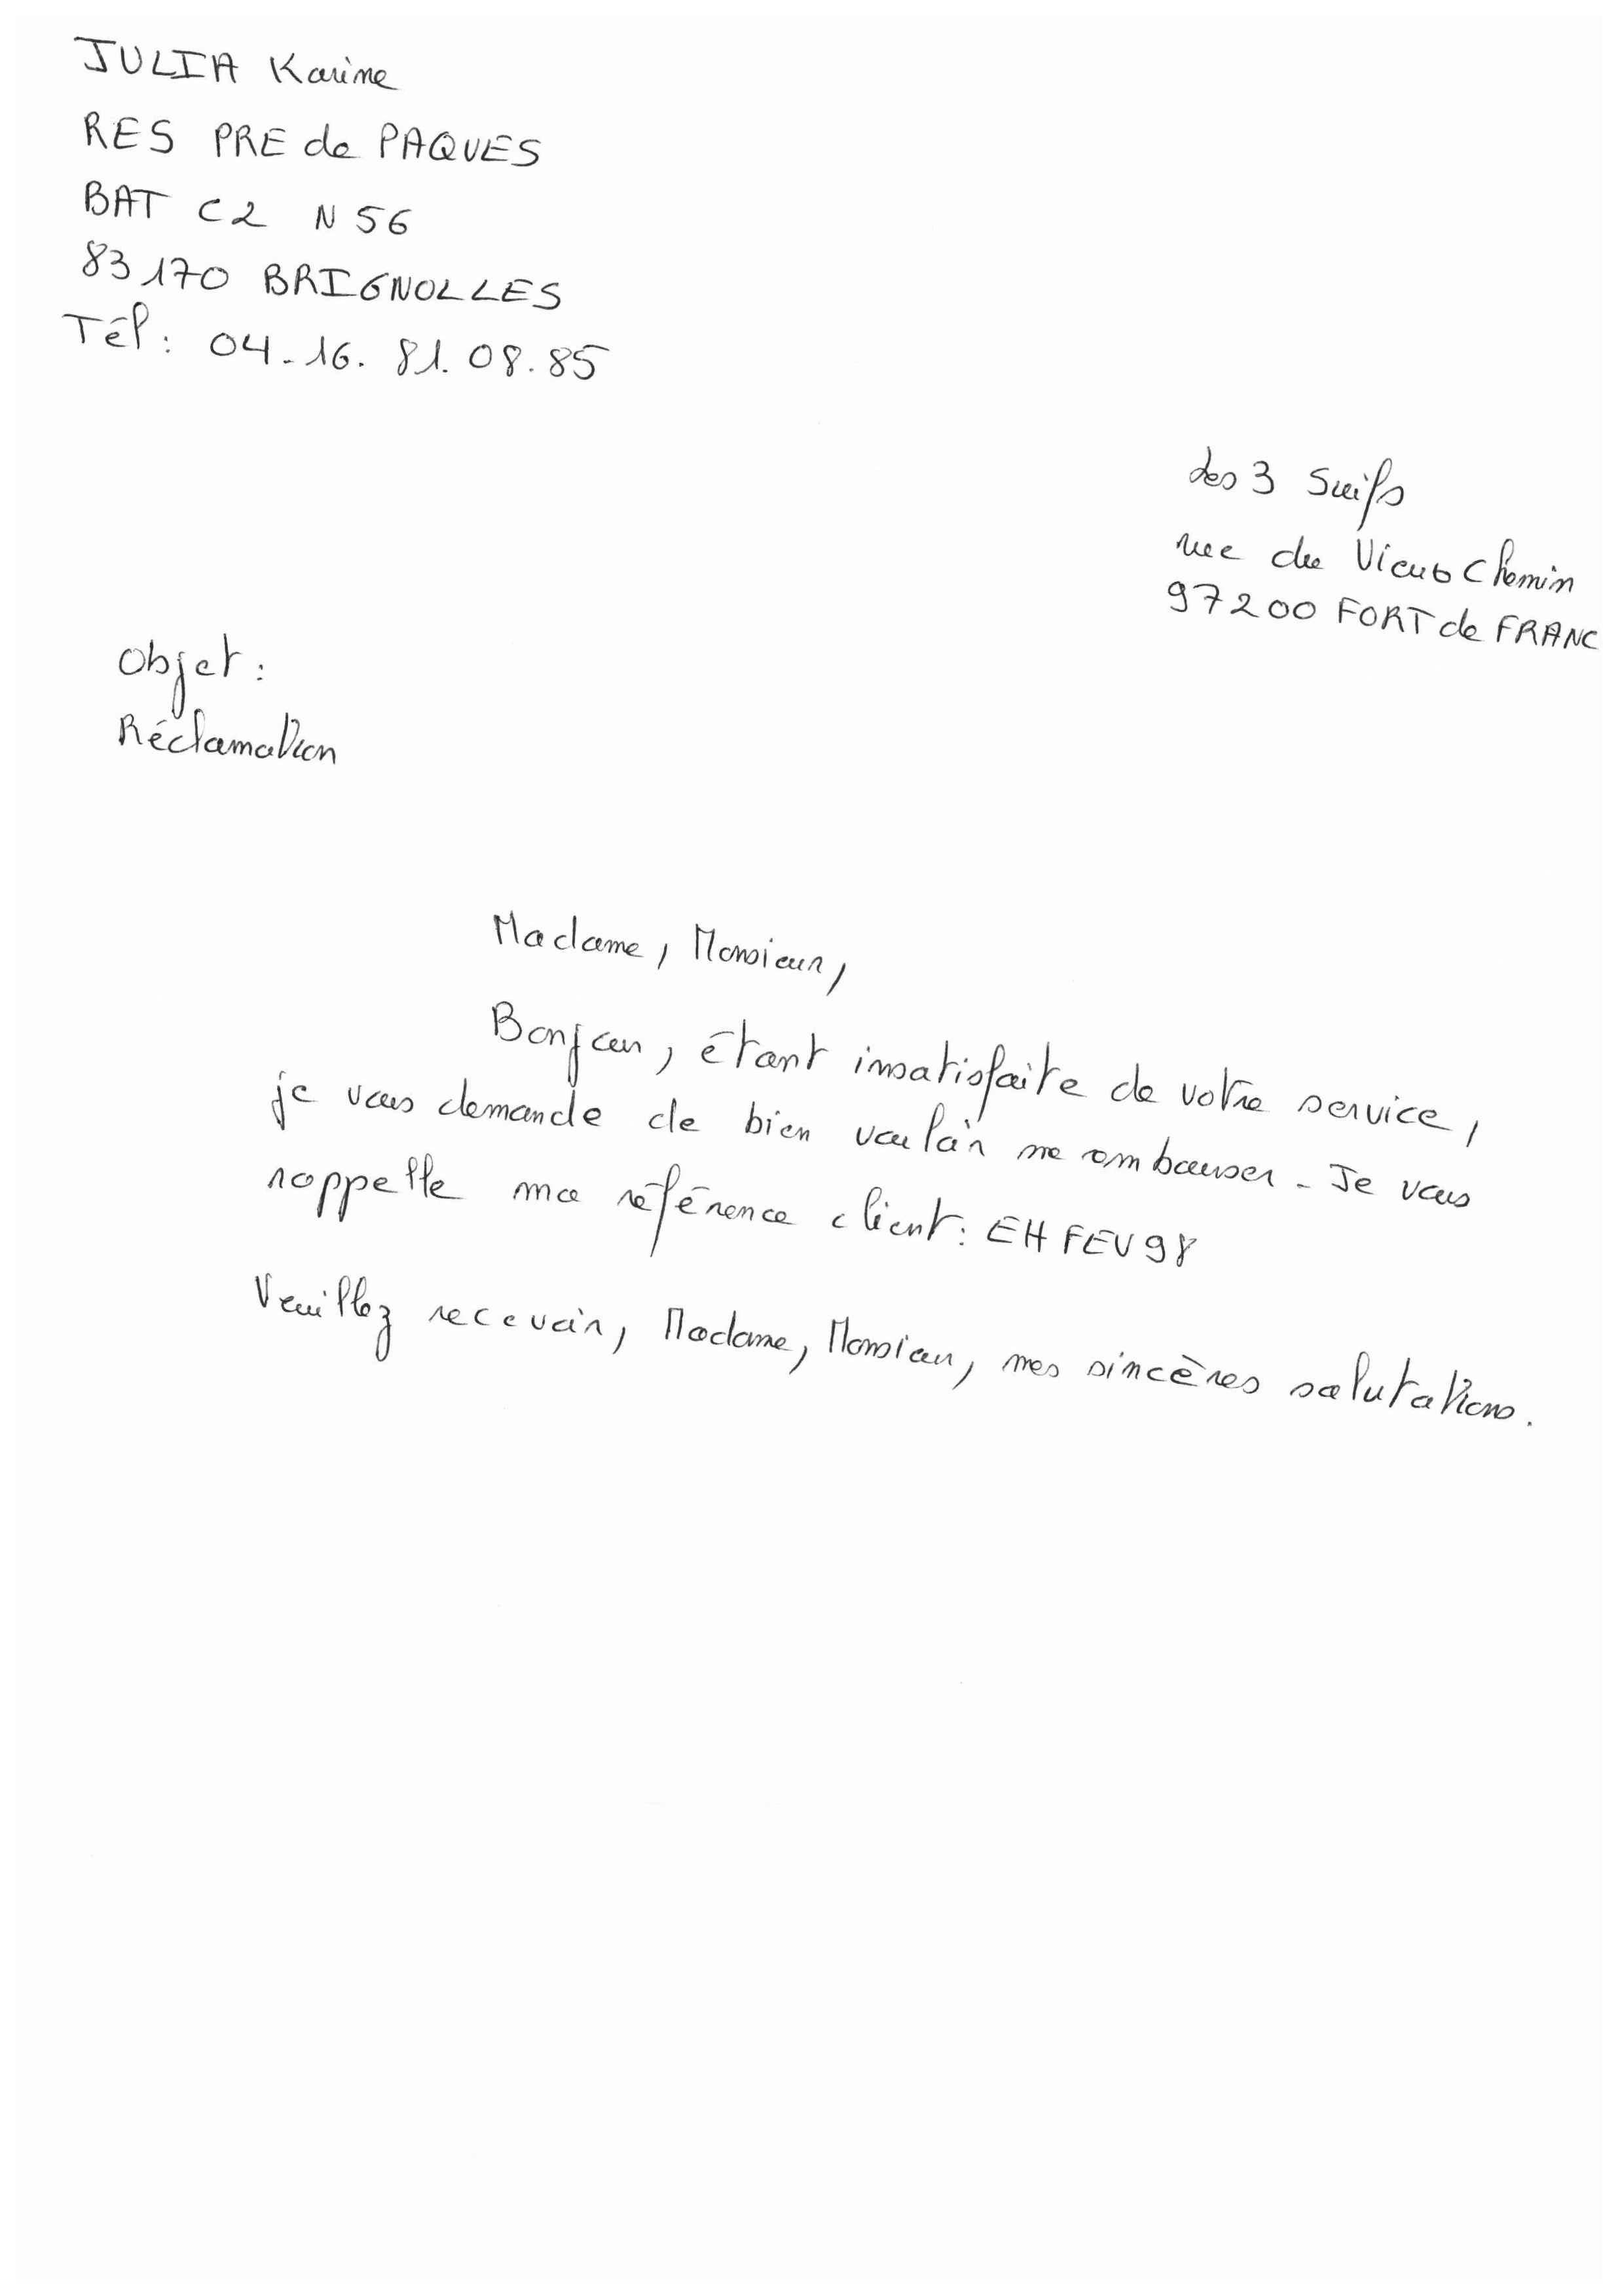 JULIA Karine
RES PRE de PAQUES
BAT C2 N 56
83170 BRIGNOLLES
Tél : 04-16.81.08.85
des 3 Suifs
rue du Vieux Chemin
97200 FORT de FRANC
Objet :
Réclamation
Madame, Monsieur,
Bonjour, étant insatisfaite de votre service,
je vous demande de bien vouloir me embourser. Je vous
rappelle ma référence client : EHFEV98
Veuillez recevoir, Madame, Monsieur, mes sincères salutations.